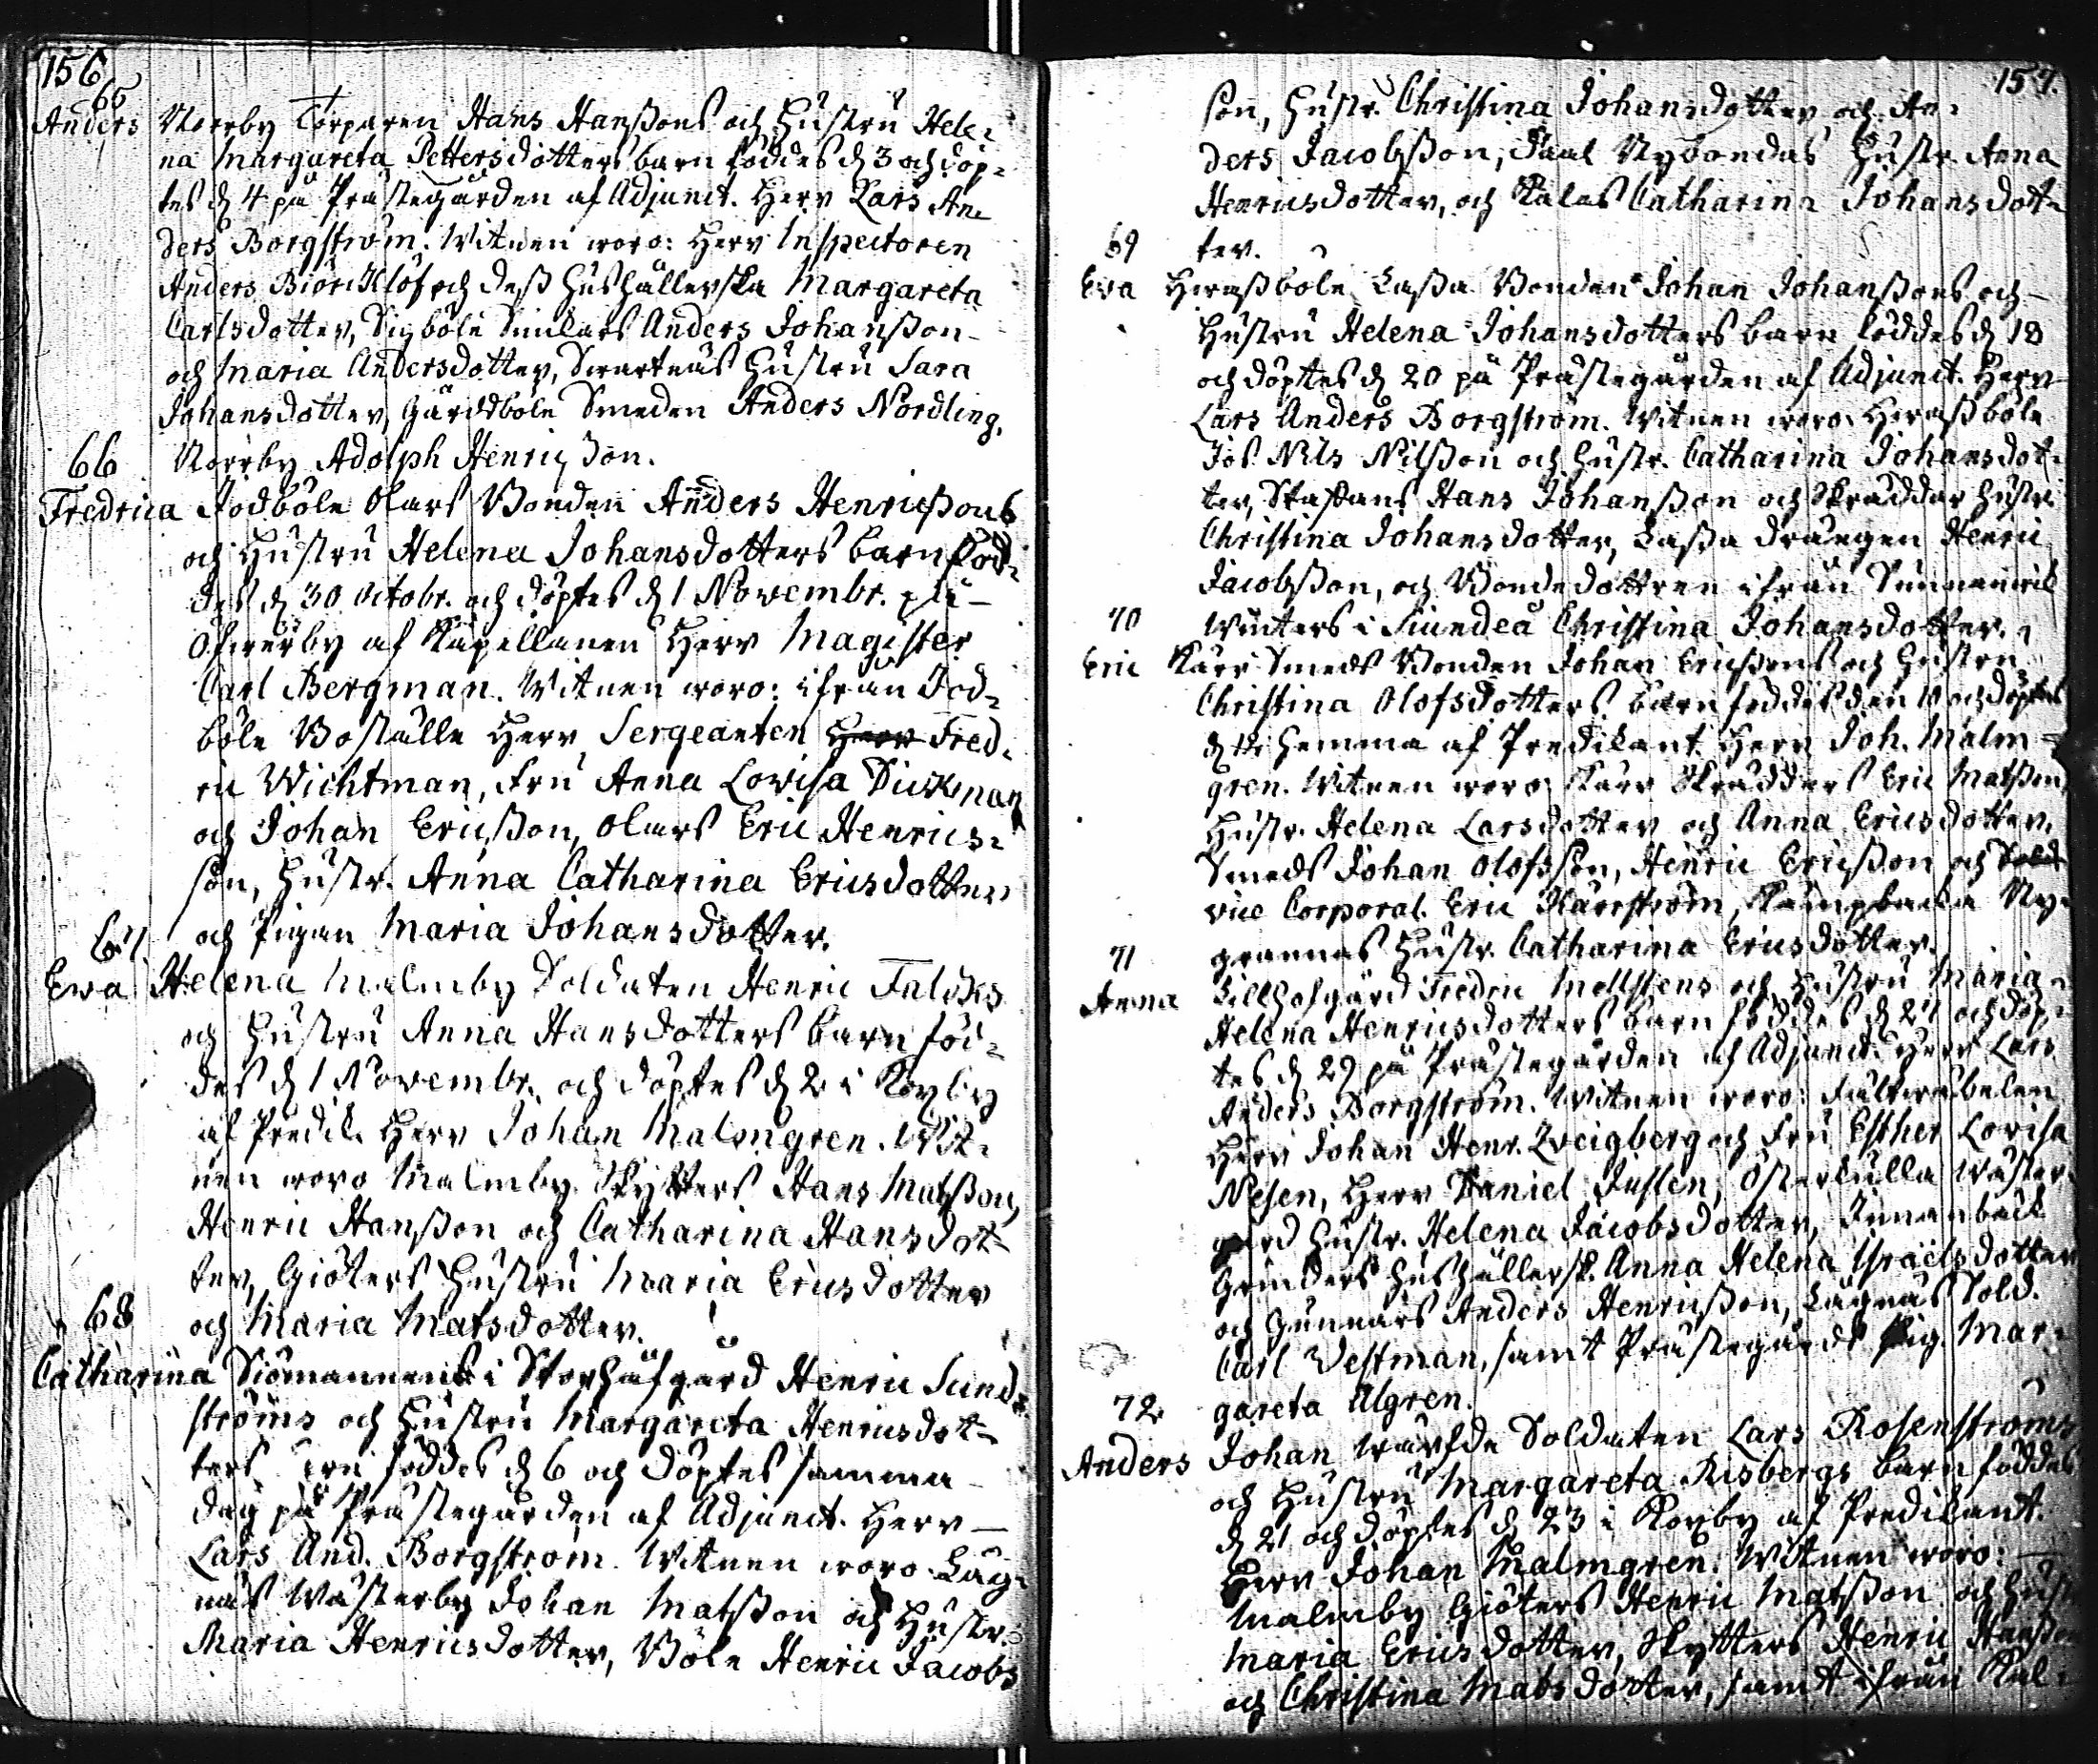 156
65
Anders Norrby Torparen Hans Hanßons och Hustru Hele=
na Margareta Pettersdotters barn föddes d 3 och döp=
tes d 4 på Prästegården af Adjunct. Herr Lars An=
ders Borgström. Witnen woro: Herr Inspectoren
Anders Biörklöf och deß Hushållerska Margareta
Carlsdotter, Sigböle Simlars Anders Johanßon
och Maria Andersdotter, Swartnäs Hustru Sara
Johansdotter, Gårdböle Smeden Anders Nordling,
66 Norrby Adolph Henricson.
Fredrica Jodböle Olars Bonden Anders Henricßons
och Hustru Helena Johansdotters barn föd=
des d 30 Octobr. och döptes d 1 Novembr. på
Öfwerby af Kapellanen Herr Magister
Carl Bergman. Witnen woro: ifrån Jod=
böle Boställe Herr Sergeanten Herr Fred=
ric Wichtman, Fru Anna Lovisa Dickman
och Johan Ericßon, Olars Eric Henrics=
son, Hustr. Anna Catharina Ericsdotter
67. och Pigan Maria Johansdotter.
Ewa Helena Malmby Soldaten Henric Falcks
och Hustru Anna Hansdotters barn föd=
des d 1 Novembr. och döptes d 2 i Koxby
af Predik. Herr Johan Malmgren. Wit=
nen woro Malmby Skytters Hans Matsson,
Henric Hanßon och Catharina Hansdot=
ter, Giöters Hustru Maria Ericsdotter
68 och Maria Matsdotter.
Catharina Siömannens i Storhåfgård Henric Sund=
ströms och Hustru Margareta Henricsdot=
ters föddes d 6 och döptes samma
dag på Prästegården af Adjunct. Herr
Lars And. Borgström. Witnen woro Lag=
näs Wästerby Johan Matsson och Hustr.
Maria Henricsdotter, Böle Henric Jacobs
157.
son, Hustr. Christina Johansdotter, och An=
ders Jacobsson, Paal Nybondas Hustr. Anna
Henricsdotter, och Kalas Catharina Johansdot=
69 ter.
Eva Heraßböle Laßa Bonden Johan Johanßons och
Hustru Helena Johansdotters barn föddes d 18
och döptes d 20 på Prästegården af Adjunct. Herr
Lars Anders Borgström. Witnen woro Heraßböle
Jos Nils Nilßon och Hustr. Catharina Johansdot=
ter, Staffans Hans Johanßon och Skräddar Hustr.
Christina Johansdotter, Laßa drängen Henric
Jacobsson, och Bondedottren ifrån Sunnanwik
70 Winters i Siundeå Christina Johansdotter.
Eric Kärr Smeds Bonden Johan Ericßons och Hustru
Christina Olofsdotters barn föddes den 10 och döptes
d 12 hemma af Predikant. Herr Joh. Malm=
gren. Witnen woro: Kärr Skräddars Eric Matsson,
Hustr. Helena Larsdotter och Anna Ericsdotter.
Smeds Johan Olofsson, Henric Ericßon och Sold
vice Corporal. Eric Kärrström, Kämpbacka Ny=
71 grannas Hustr. Catharina Ericsdotter.
Anna Lillhofgård Fredric Mellstens och Hustru Maria
Helena Henricsdotters barn föddes d 27 och döp=
tes d 29 på Prästegården af Adjunct. Herr Lars
Anders Borgström. Witnen woro: Fältwäbelen
Herr Johan Henr. Zveigberg och Fru Esther Lovisa
Nesen, Herr Daniel Juslen, Österkulla Wäster=
gård Hustr. Helena Jacobsdotter, Finnanback
Grinders Hushållersk. Anna Helena Israelsdotter
och Gunnars Anders Henricßon, Lagnäs Sold.
Carl Vestman, samt Prästegårds Pig. Mar=
72. gareta Algren.
Anders Johan Wärfde Soldaten Lars Rosenströms
och Hustru Margareta Risbergs barn föddes
d 21 och döptes d 23 i Koxby af Predikant.
Herr Johan Malmgren. Witnen woro:
Malmby Giöters Henric Matsson och Hustr
Maria Ericsdotter, Skytters Henric Hansson
och Christina Matsdotter, samt ifrån Kal=